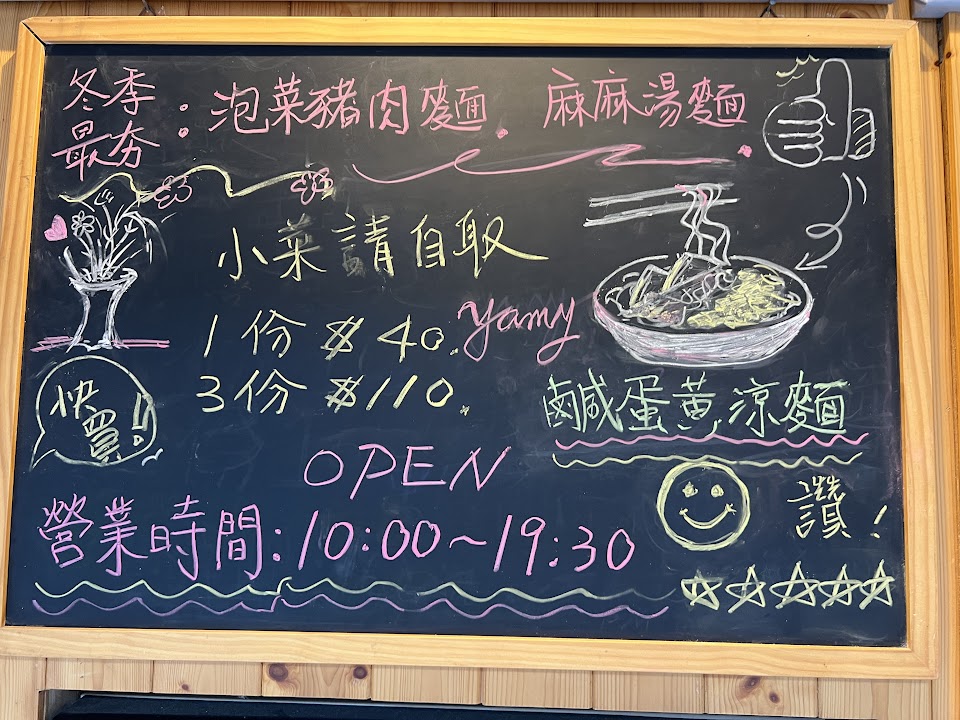 冬季
最夯：泡菜豬肉麵. 麻麻湯麵.
小菜請自取
1份 $40.
Yamy
3份 $110.
快買!!
鹹蛋黃涼麵
OPEN
讚!
營業時間:10:00~19:30